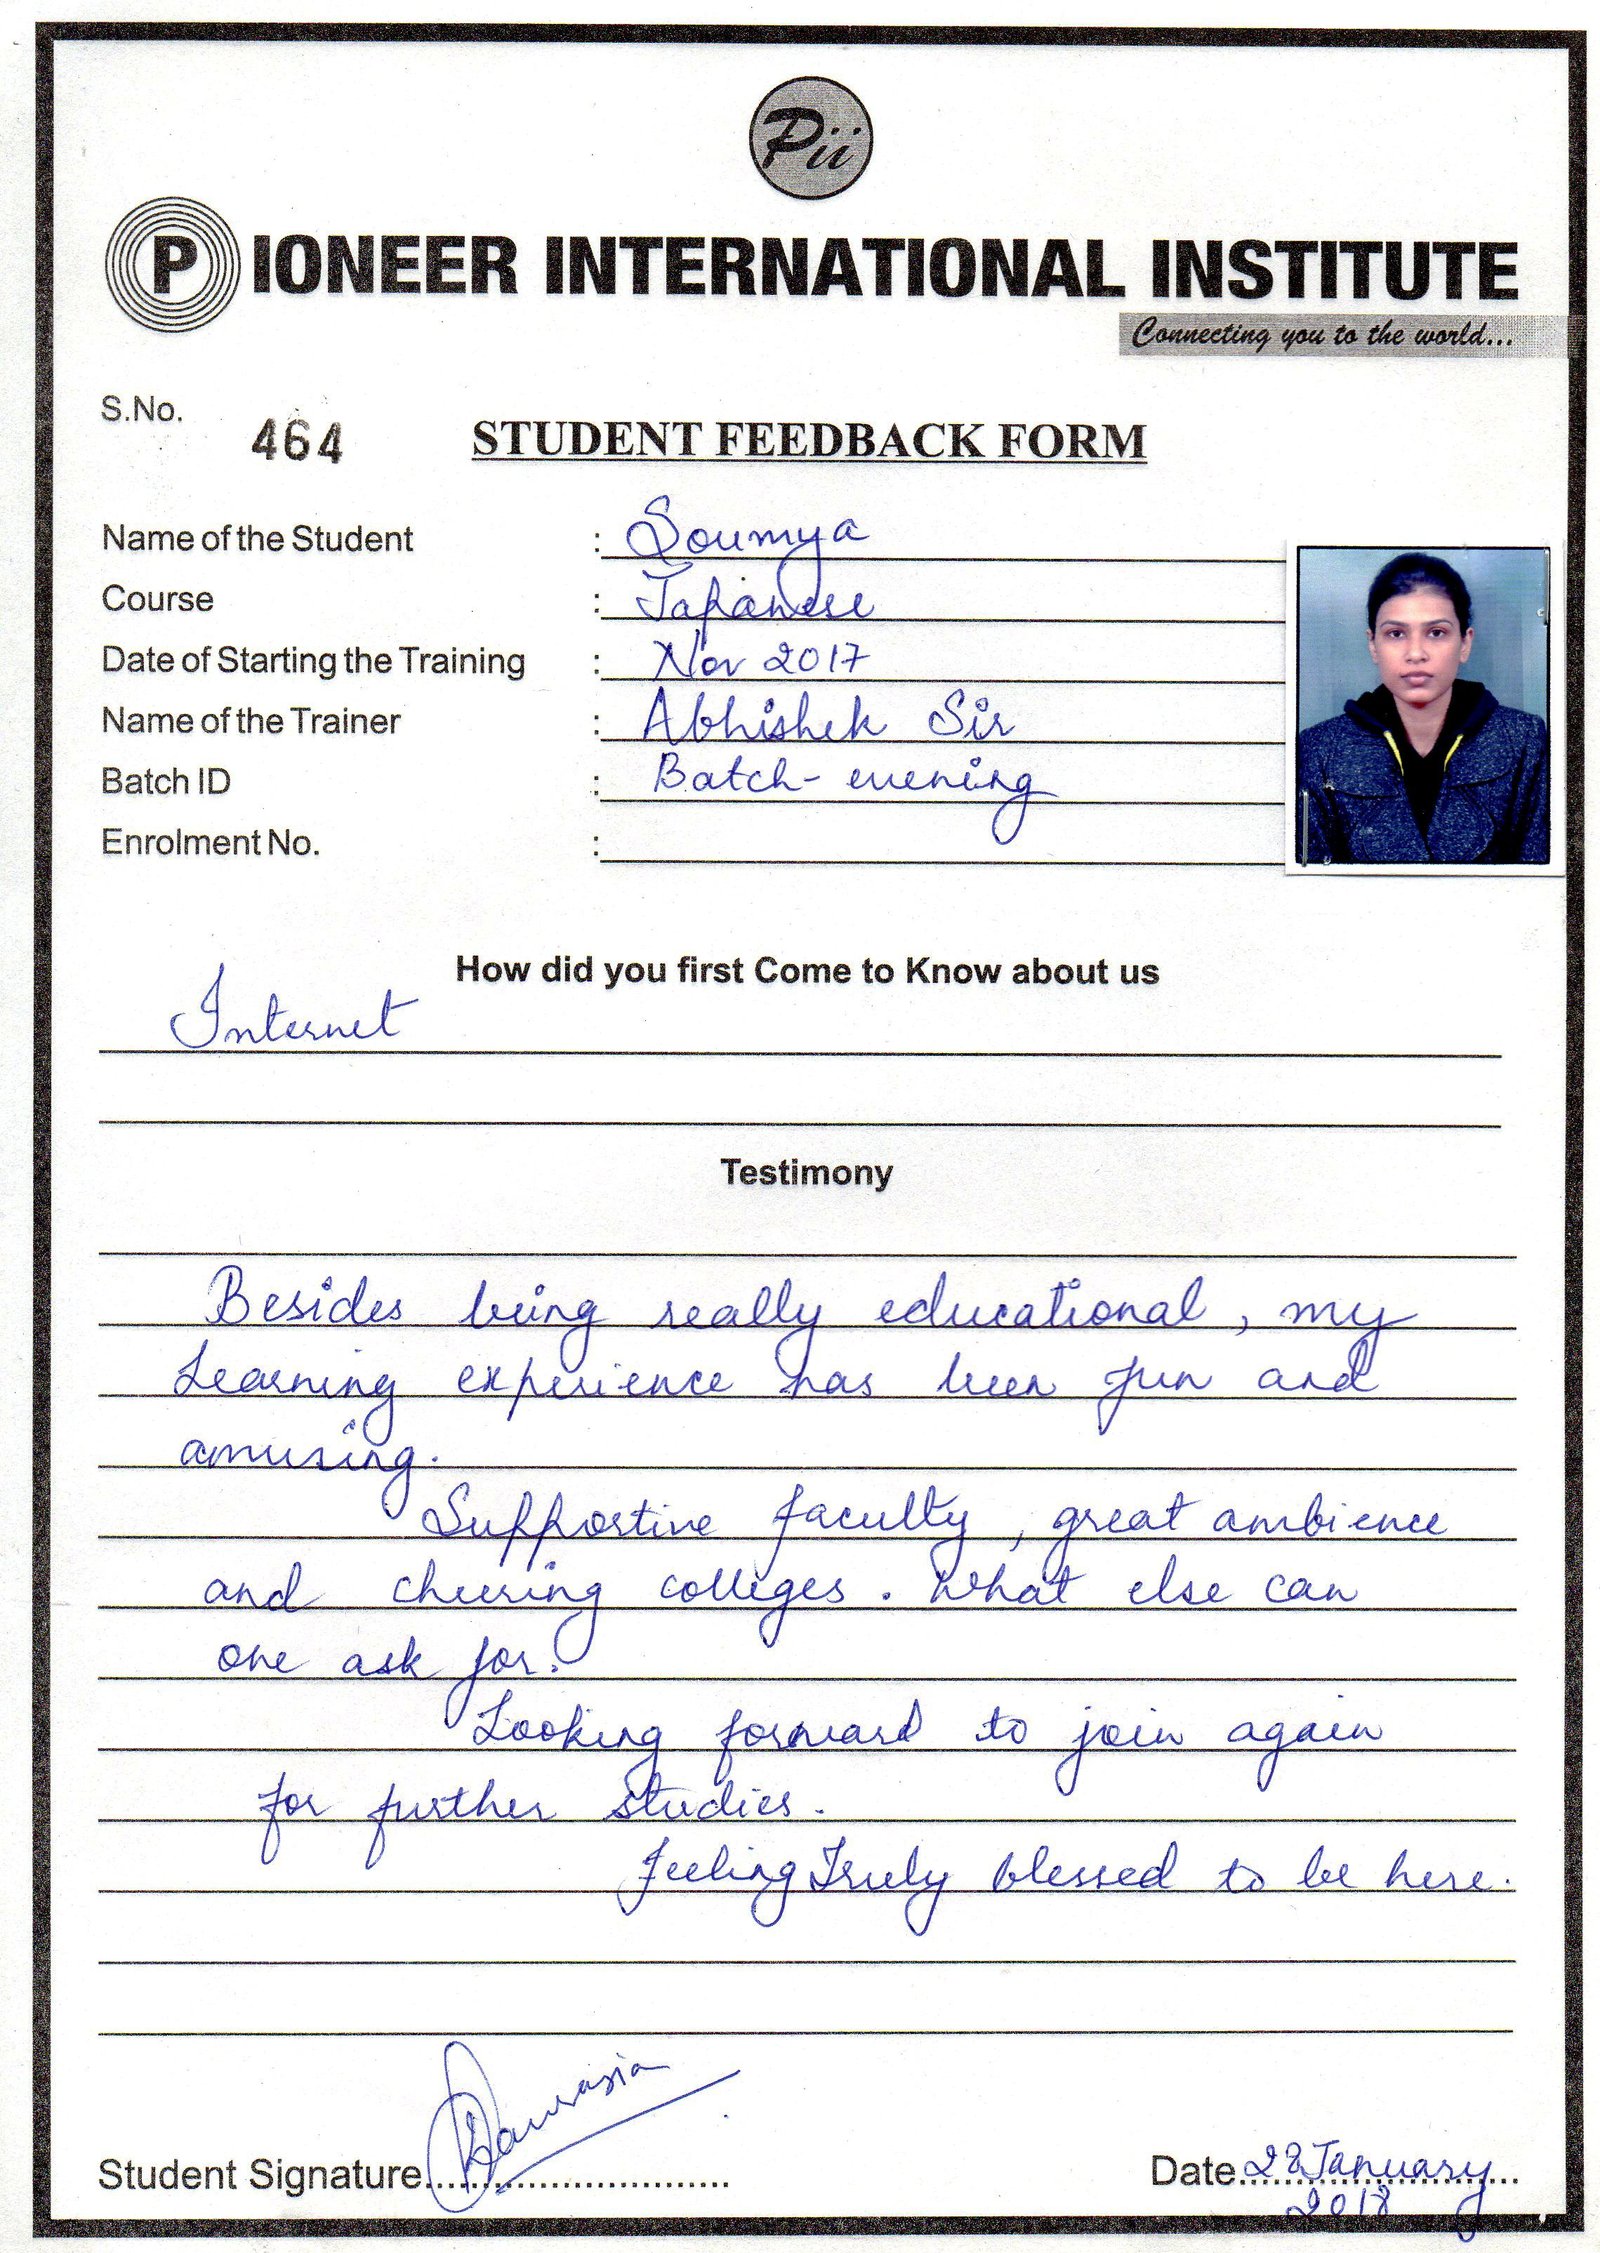 Pii
PIONEER INTERNATIONAL INSTITUTE
Connecting you to the world...
S.No. 464
STUDENT FEEDBACK FORM
Name of the Student : Soumya
Course : Japanese
Date of Starting the Training : Nov 2017
Name of the Trainer : Abhishek Sir
Batch ID : Batch- evening
Enrolment No. :
How did you first Come to Know about us
Internet
Testimony
Besides being really educational, my
learning experience has been fun and
amusing.
Supportive faculty, great ambience
and cheering colleges. What else can
one ask for.
Looking forward to join again
for further studies.
Feeling Truly blessed to be here.
Student Signature
Date 22 January
2018